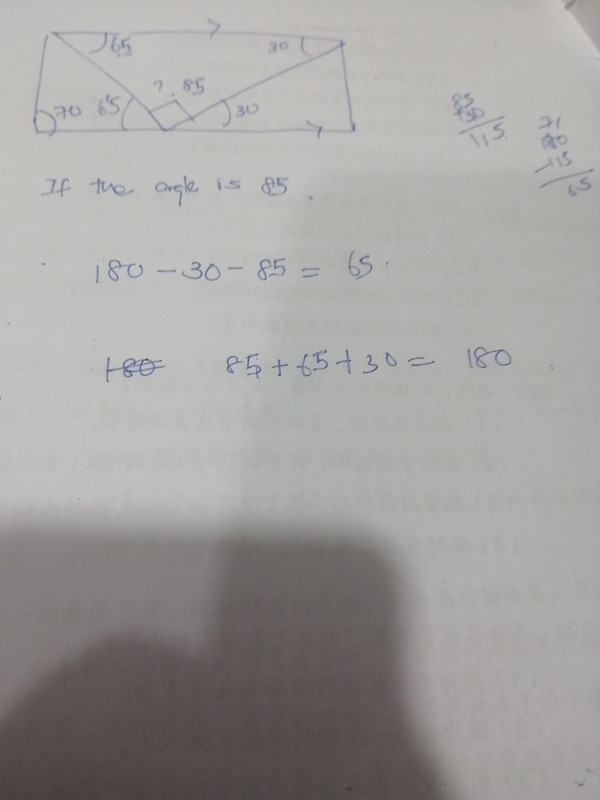 65
30
70
65
?
85
30
85
+30
115
180
115
65
If the angle is 85.
180 - 30 - 85 = 65.
180 85 + 65 + 30 = 180